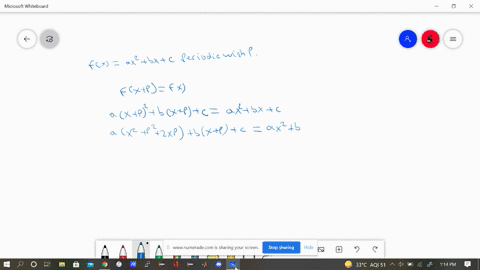 Microsoft Whiteboard
f(x) = ax² + bx + c Periodic with P.
f(x+P) = f(x)
a(x+P)² + b(x+P) + c = ax² + bx + c
a(x² + P² + 2xP) + b(x+P) + c = ax² + b
www.numerade.com is sharing your screen. Stop sharing Hide
33°C AQI 51 1:14 PM